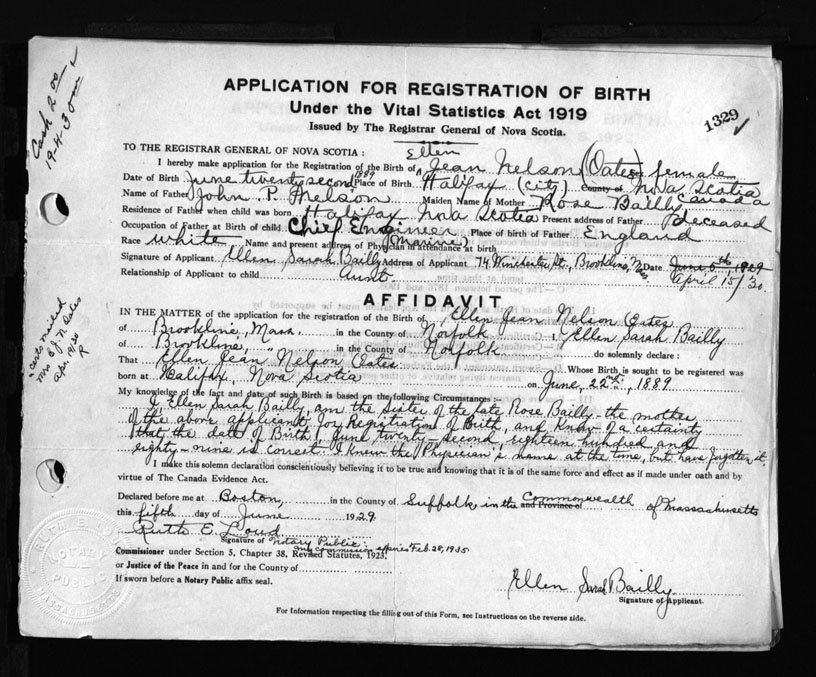 Cash 2 00
19-4-30
APPLICATION FOR REGISTRATION OF BIRTH
Under the Vital Statistics Act 1919
Issued by The Registrar General of Nova Scotia.
1329
TO THE REGISTRAR GENERAL OF NOVA SCOTIA :
Ellen
I hereby make application for the Registration of the Birth of Jean Nelson (Oates) female
Date of Birth June twenty second 1889 Place of Birth Halifax (City) County of Nova Scotia
Canada
Name of Father John P. Nelson Maiden Name of Mother Rose Bailly
Residence of Father when child was born Halifax Nova Scotia Present address of Father Deceased
Occupation of Father at Birth of child Chief Engineer Place of birth of Father England
(Marine)
Race white Name and present address of Physician in attendance at birth
Signature of Applicant Ellen Sarah Bailly Address of Applicant 74 Winchester St., Brookline, Mass Date June 5th, 1929
Relationship of Applicant to child Aunt April 15/30
AFFIDAVIT
certs mailed
Mrs E J N Oates
apr 19/30
R
IN THE MATTER of the application for the registration of the Birth of Ellen Jean Nelson Oates
of Brookline, Mass. in the County of Norfolk I, Ellen Sarah Bailly
of Brookline, " in the County of Norfolk do solemnly declare :
That Ellen Jean Nelson Oates Whose Birth is sought to be registered was
born at Halifax, Nova Scotia on June, 22nd, 1889
My knowledge of the fact and date of such Birth is based on the following Circumstances :-
I Ellen Sarah Bailly, am the sister of the late Rose Bailly - the mother
of the above applicant for Registration of Birth, and know of a certainty
that the date of Birth, June twenty-second, eighteen hundred and
eighty-nine is correct. I knew the Physician's name at the time, but have forgotten it.
I make this solemn declaration conscientiously believing it to be true and knowing that it is of the same force and effect as if made under oath and by
virtue of The Canada Evidence Act.
Declared before me at Boston, in the County of Suffolk in the and Province of Commonwealth of Massachusetts
this fifth day of June 1929.
Ruth E. Loud
Signature of Notary Public:
my commission expires Feb. 28, 1935
Commissioner under Section 5, Chapter 38, Revised Statutes, 1923.
or Justice of the Peace in and for the County of
If sworn before a Notary Public affix seal.
NOTARY
PUBLIC
MASSACHUSETTS
Ellen Sarah Bailly
Signature of Applicant.
For Information respecting the filling out of this Form, see Instructions on the reverse side.